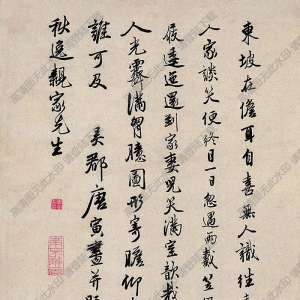 東坡在儋耳自喜無人識往來
人家談笑便終日一日忽遇雨戴笠
屐逶迤還到家妻兒笑滿室歆哉
人光霽滿胷臆圖形寄瞻仰
誰可及 吳郡唐寅畫并題
秋逸親家先生